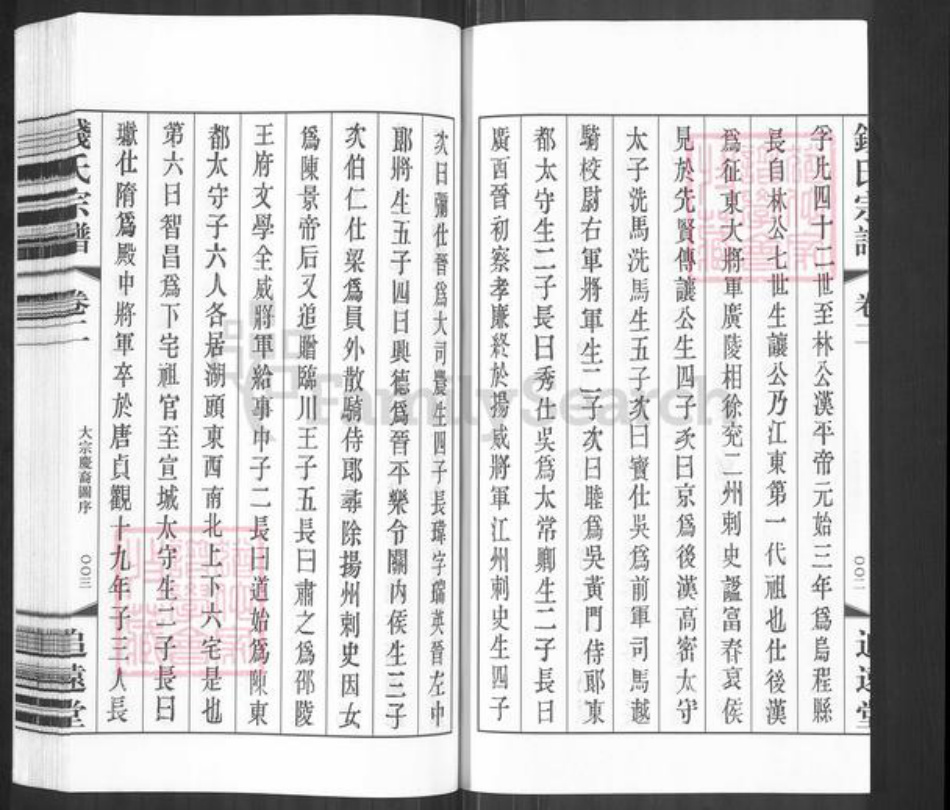 錢氏宗譜 卷二 〇〇二 追遠堂
孚凡四十二世至林公漢平帝元始三年爲烏程縣
長自林公七世生讓公乃江東第一代祖也仕後漢
爲征東大將軍廣陵相徐兗二州刺史諡富春哀侯
見於先賢傳讓公生四子次曰京爲後漢高密太守
太子洗馬洗馬生五子次曰寳仕吳爲前軍司馬越
騎校尉右軍將軍生二子次曰睦爲吳黃門侍郞東
都太守生二子長曰秀仕吳爲太常卿生二子長曰
廣西晉初察孝廉終於揚威將軍江州刺史生四子
次曰彌仕晉爲大司農生四子長瑋字瑞英晉左中
郞將生五子四曰興德爲晉平樂令關內侯生三子
次伯仁仕梁爲員外散騎侍郞尋除揚州刺史因女
爲陳景帝后又追贈臨川王子五長曰肅之爲邵陵
王府文學全威將軍給事中子二長曰道始爲陳東
都太守子六人各居湖頭東西南北上下六宅是也
第六曰智昌爲下宅祖官至宣城太守生二子長曰
瓛仕隋爲殿中將軍卒於唐貞觀十九年子三人長
錢氏宗譜 卷二 大宗慶裔圖序 〇〇三 追遠堂
FamilySearch